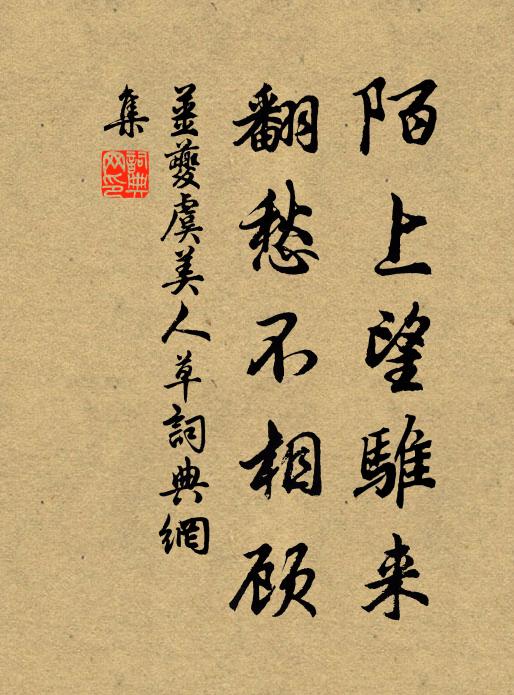 陌上望騅来
翻愁不相顾
姜夔虞美人草詞典網
集
詞典
网印